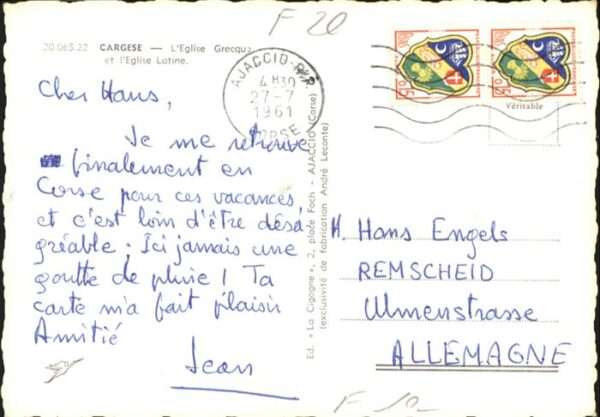 F 20
20.063.22 CARGESE — L'Eglise Grecque
et l'Eglise Latine.
AJACCIO
4 H30
27-7
1961
CORSE
0,15
0,15
Véritable
Cher Hans,
Je me retrouve
finalement en
Corse pour ces vacances,
et c'est loin d'être désa
gréable. Ici jamais une
goutte de pluie ! Ta
carte m'a fait plaisir
Amitié
Jean
Ed. « La Cigogne », 2, place Foch - AJACCIO (Corse)
(exclusivité de fabrication André Leconte)
M. Hans Engels
REMSCHEID
Ulmenstrasse
ALLEMAGNE
F 10-